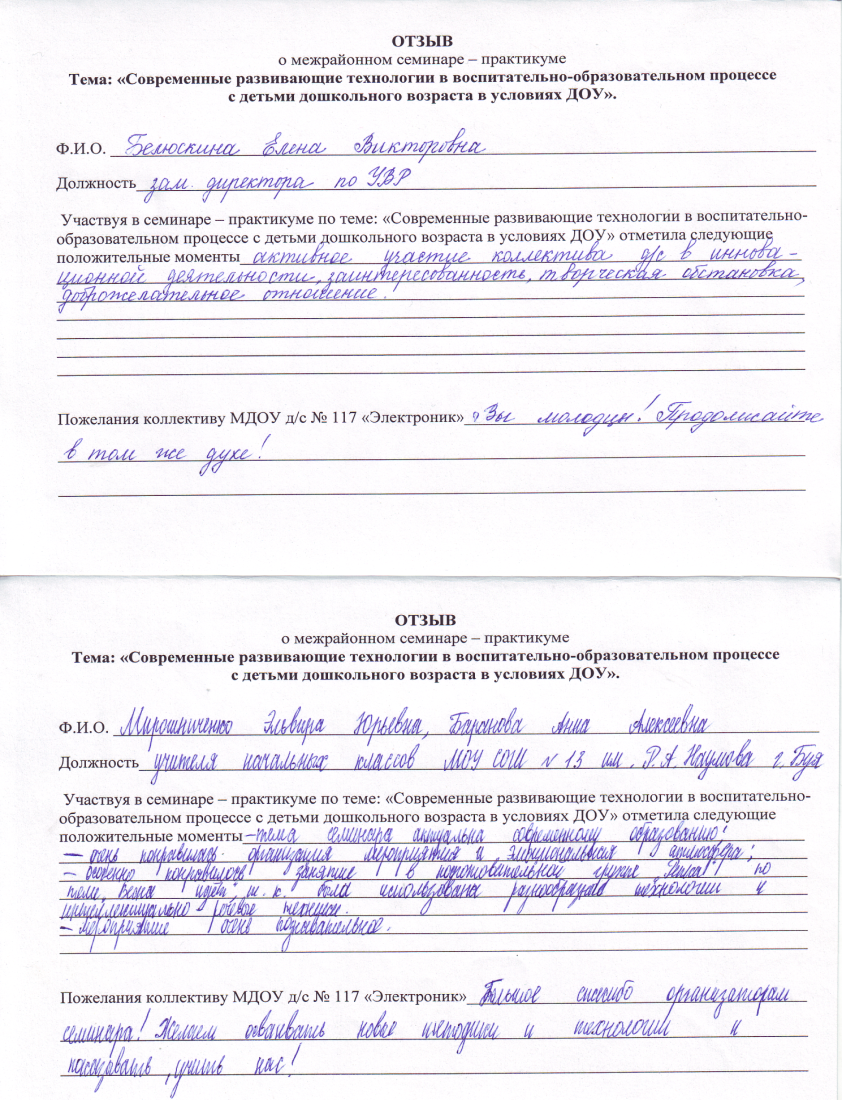 ОТЗЫВ
о межрайонном семинаре – практикуме
Тема: «Современные развивающие технологии в воспитательно-образовательном процессе
с детьми дошкольного возраста в условиях ДОУ».
Ф.И.О. Белюскина Елена Викторовна
Должность зам. директора по УВР
Участвуя в семинаре – практикуме по теме: «Современные развивающие технологии в воспитательно-
образовательном процессе с детьми дошкольного возраста в условиях ДОУ» отметила следующие
положительные моменты активное участие коллектива д/с в иннова-
ционной деятельности, заинтересованность, творческая обстановка,
доброжелательное отношение.
Пожелания коллективу МДОУ д/с № 117 «Электроник» Вы молодцы! Продолжайте
в том же духе!
ОТЗЫВ
о межрайонном семинаре – практикуме
Тема: «Современные развивающие технологии в воспитательно-образовательном процессе
с детьми дошкольного возраста в условиях ДОУ».
Ф.И.О. Мирошниченко Эльвира Юрьевна, Баранова Анна Алексеевна
Должность учителя начальных классов МОУ СОШ № 13 им. Р.А. Наумова г. Буя
Участвуя в семинаре – практикуме по теме: «Современные развивающие технологии в воспитательно-
образовательном процессе с детьми дошкольного возраста в условиях ДОУ» отметила следующие
положительные моменты – тема семинара актуальна современному образованию;
– очень понравилась организация мероприятия и эмоциональная атмосфера;
– особенно понравилось занятие в подготовительной группе по
теме т.к. были использованы разнообразные технологии и
речевое
– мероприятие очень познавательное.
Пожелания коллективу МДОУ д/с № 117 «Электроник» Большое спасибо организаторам
семинара! Желаем осваивать новые методики и технологии и
показывать, учить нас!